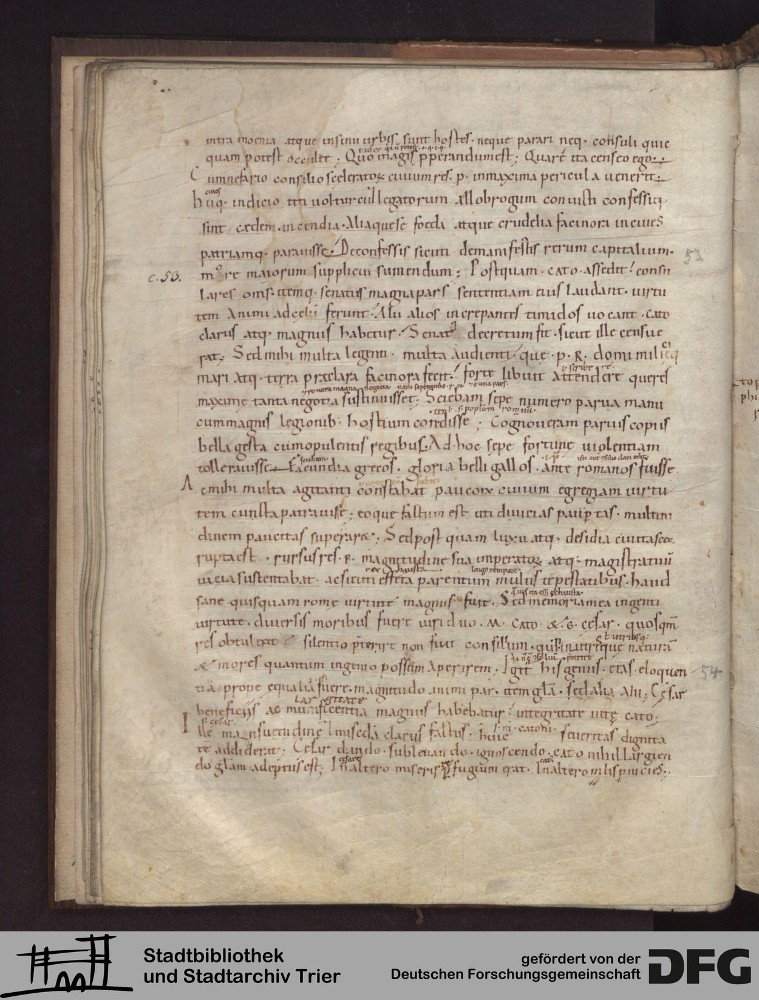 intra moenia atque insinu urbis sunt hostes. neque parari neq. consuli quic
quam potest occulte; Quo magis pperandum est; Quare ita censeo ego;
Cum nefario consilio sceleratoꝝ ciuium res. p. inmaxima pericula uenerit.
hiiq. indicio titi uolturcii & legatorum allobrogum conuicti confessiq.
sint caedem. incendia. Aliaque se foeda atque crudelia facinora inciues
patriamq. parauisse. De confessis sicuti de manifestis rerum capitalium.
more maiorum supplicium sumendum; Postquam. cato. assedit. consu
c. 53.
lares oms. itemq. senatus magna pars sententiam eius laudant. uirtu
53
tem Animi ad celum ferunt. Alii alios increpantes timidos uocant. cato
clarus atq. magnus habetur. Senati decretum fit. sicut ille censue
rat. Sed mihi multa legenti. multa Audienti. que. p. R. domi miliciq
mari atq. terra praeclara facinora fecit. forte libuit attendere que res
maxime tanta negotia sustinuisset; Sciebam sepe numero parua manu
cum magnis legionib. hostium contendisse; Cognoueram paruis copiis
bella gesta cum opulentis regibus. Ad hoc sepe fortune uiolentiam
tollerauisse. Facundia grecos. gloria belli gallos. ante romanos fuisse.
Ac mihi multa agitanti constabat paucorum ciuium egregiam uirtu
tem cuncta patrauisse; eoque factum est uti diuicias paupertas. multitu
dinem paucitas superaret. Sed post quam luxu atq. desidia ciuitas cor
rupta est. rursus res. p. magnitudine sua imperatoꝝ atq. magistratuũ
uicia sustentabat. ac sicuti effeta parentum multis tempestatibus. haud
sane quisquam rome uirtute magnus fuit. Sed memoria mea ingenti
uirtute. diuersis moribus fuere uiri duo. M. Cato. & G. Cesar. quos qm
res obtulerat silentio preterire non fuit consilium. quin utriusque naturã
& mores quantum ingenio possem Aperirem. Igit his genus. etas. eloquen
54
tia prope equalia fuere. magnitudo animi par. item gla. sed alia alii; Cesar
beneficiis ac munificentia magnus habebatur. integritate uite cato.
Ille mansuetudine & misericordia clarus factus. huic seueritas dignita
te addiderat. Cesar dando. subleuando. ignoscendo. cato nihil largien
do glam adeptus est; In altero miseris pfugium erat. In altero malis pernicies.
Stadtbibliothek
und Stadtarchiv Trier
gefördert von der
Deutschen Forschungsgemeinschaft
DFG